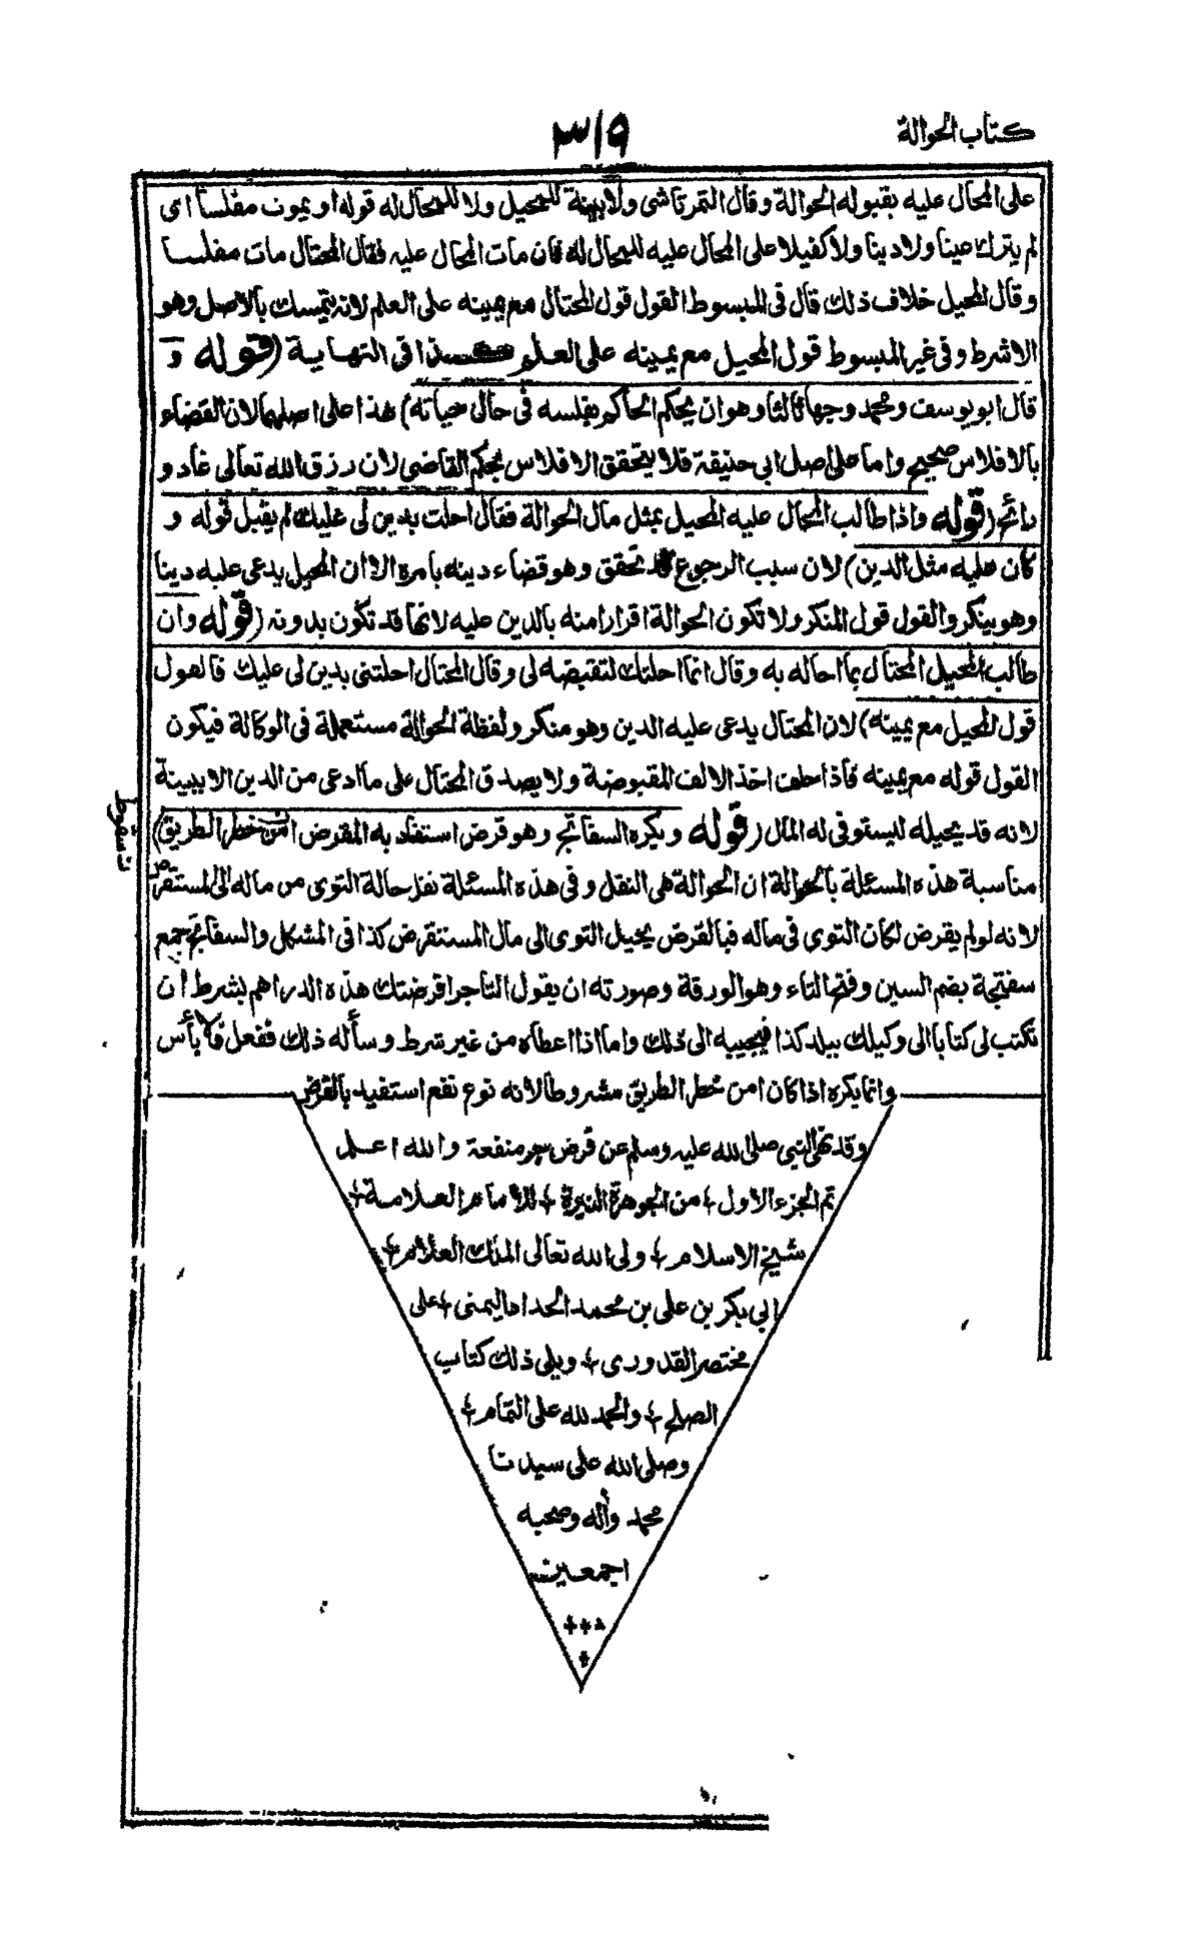 كتاب الحوالة
٣١٩
على المحال عليه بقبوله الحوالة وقال التمرتاشى ولا بينة للمحيل ولا للمحال له قوله او يموت مفلسا اى
لم يترك عينا ولا دينا ولا كفيلا على المحال عليه للمحال له فان مات المحال عليه فقال المحتال مات مفلسا
وقال المحيل خلاف ذلك قال فى المبسوط القول قول المحتال مع يمينه على العلم لانه يتمسك بالاصل وهو
الاشرط وفى غير المبسوط قول المحيل مع يمينه على العلم كذا فى النهاية (قوله و
قال ابو يوسف ومحمد وجها ثالثا وهو ان يحكم الحاكم بفلسه فى حال حياته) هذا على اصلهما لان القضاء
بالافلاس صحيح واما على اصل ابى حنيفة فلا يتحقق الافلاس بحكم القاضى لان رزق الله تعالى غاد و
رائح (قوله واذا طالب المحال عليه المحيل بمثل مال الحوالة فقال احلت بدين لى عليك لم يقبل قوله و
كان عليه مثل الدين) لان سبب الرجوع قد تحقق وهو قضاء دينه بامره الا ان المحيل يدعى عليه دينا
وهو ينكر والقول قول المنكر ولا تكون الحوالة اقرارا منه بالدين عليه لانها قد تكون بدونه (قوله وان
طالب المحيل المحتال بما احاله به وقال انما احلتك لتقبضه لى وقال المحتال احلتنى بدين لى عليك فالقول
قول المحيل مع يمينه) لان المحتال يدعى عليه الدين وهو منكر ولفظة الحوالة مستعملة فى الوكالة فيكون
القول قوله مع يمينه فاذا حلف اخذ الالف المقبوضة ولا يصدق المحتال على ما ادعى من الدين الا ببينة
لانه قد يحيله ليستوفى له المال (قوله ويكره السفاتج وهو قرض استفاد به المقرض امن خطر الطريق)
مناسبة هذه المسئلة بالحوالة ان الحوالة هى النقل وفى هذه المسئلة نقل حالة التوى من ماله الى المستقرض
لانه لو لم يقرض لكان التوى فى ماله فبالقرض يحيل التوى الى مال المستقرض كذا فى المشكل والسفاتج جمع
سفتجة بضم السين وفتح التاء وهو الورقة وصورته ان يقول التاجر اقرضتك هذه الدراهم بشرط ان
تكتب لى كتابا الى وكيلك ببلد كذا فيجيبه الى ذلك واما اذا اعطاه من غير شرط وسأله ذلك ففعل فلا بأس
وانما يكره اذا كان امن خطر الطريق مشروطا لانه نوع نفع استفيد بالقرض
وقد نهى النبى صلى الله عليه وسلم عن قرض جر منفعة والله اعلم
تم الجزء الاول + من الجوهرة النيرة + للامام العلامة +
شيخ الاسلام + ولى الله تعالى الملك العلام +
ابى بكر بن على بن محمد الحداد اليمنى + على
مختصر القدورى + ويلى ذلك كتاب
الصلح + والحمد لله على التمام +
وصلى الله على سيدنا
محمد وأله وصحبه
اجمعين
+++
+